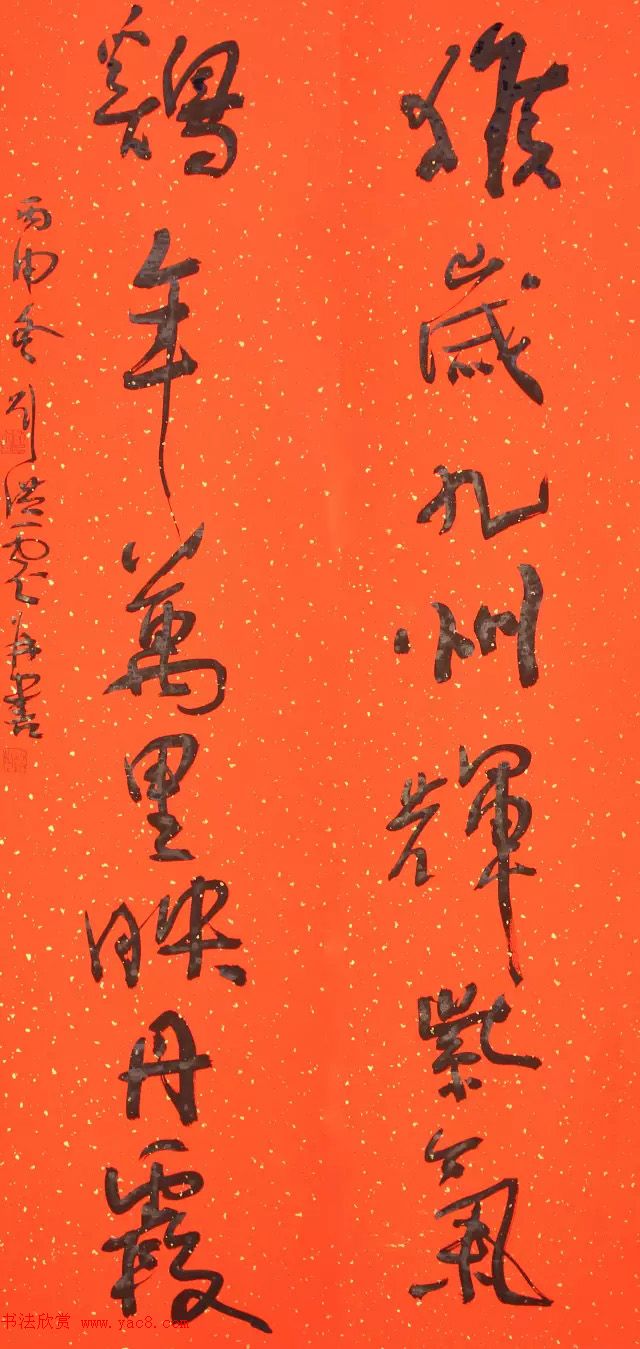 猴歲九州輝紫氣
鷄年萬里映丹霞
丙申冬 劉洪雲書
书法欣赏 www.yac8.com